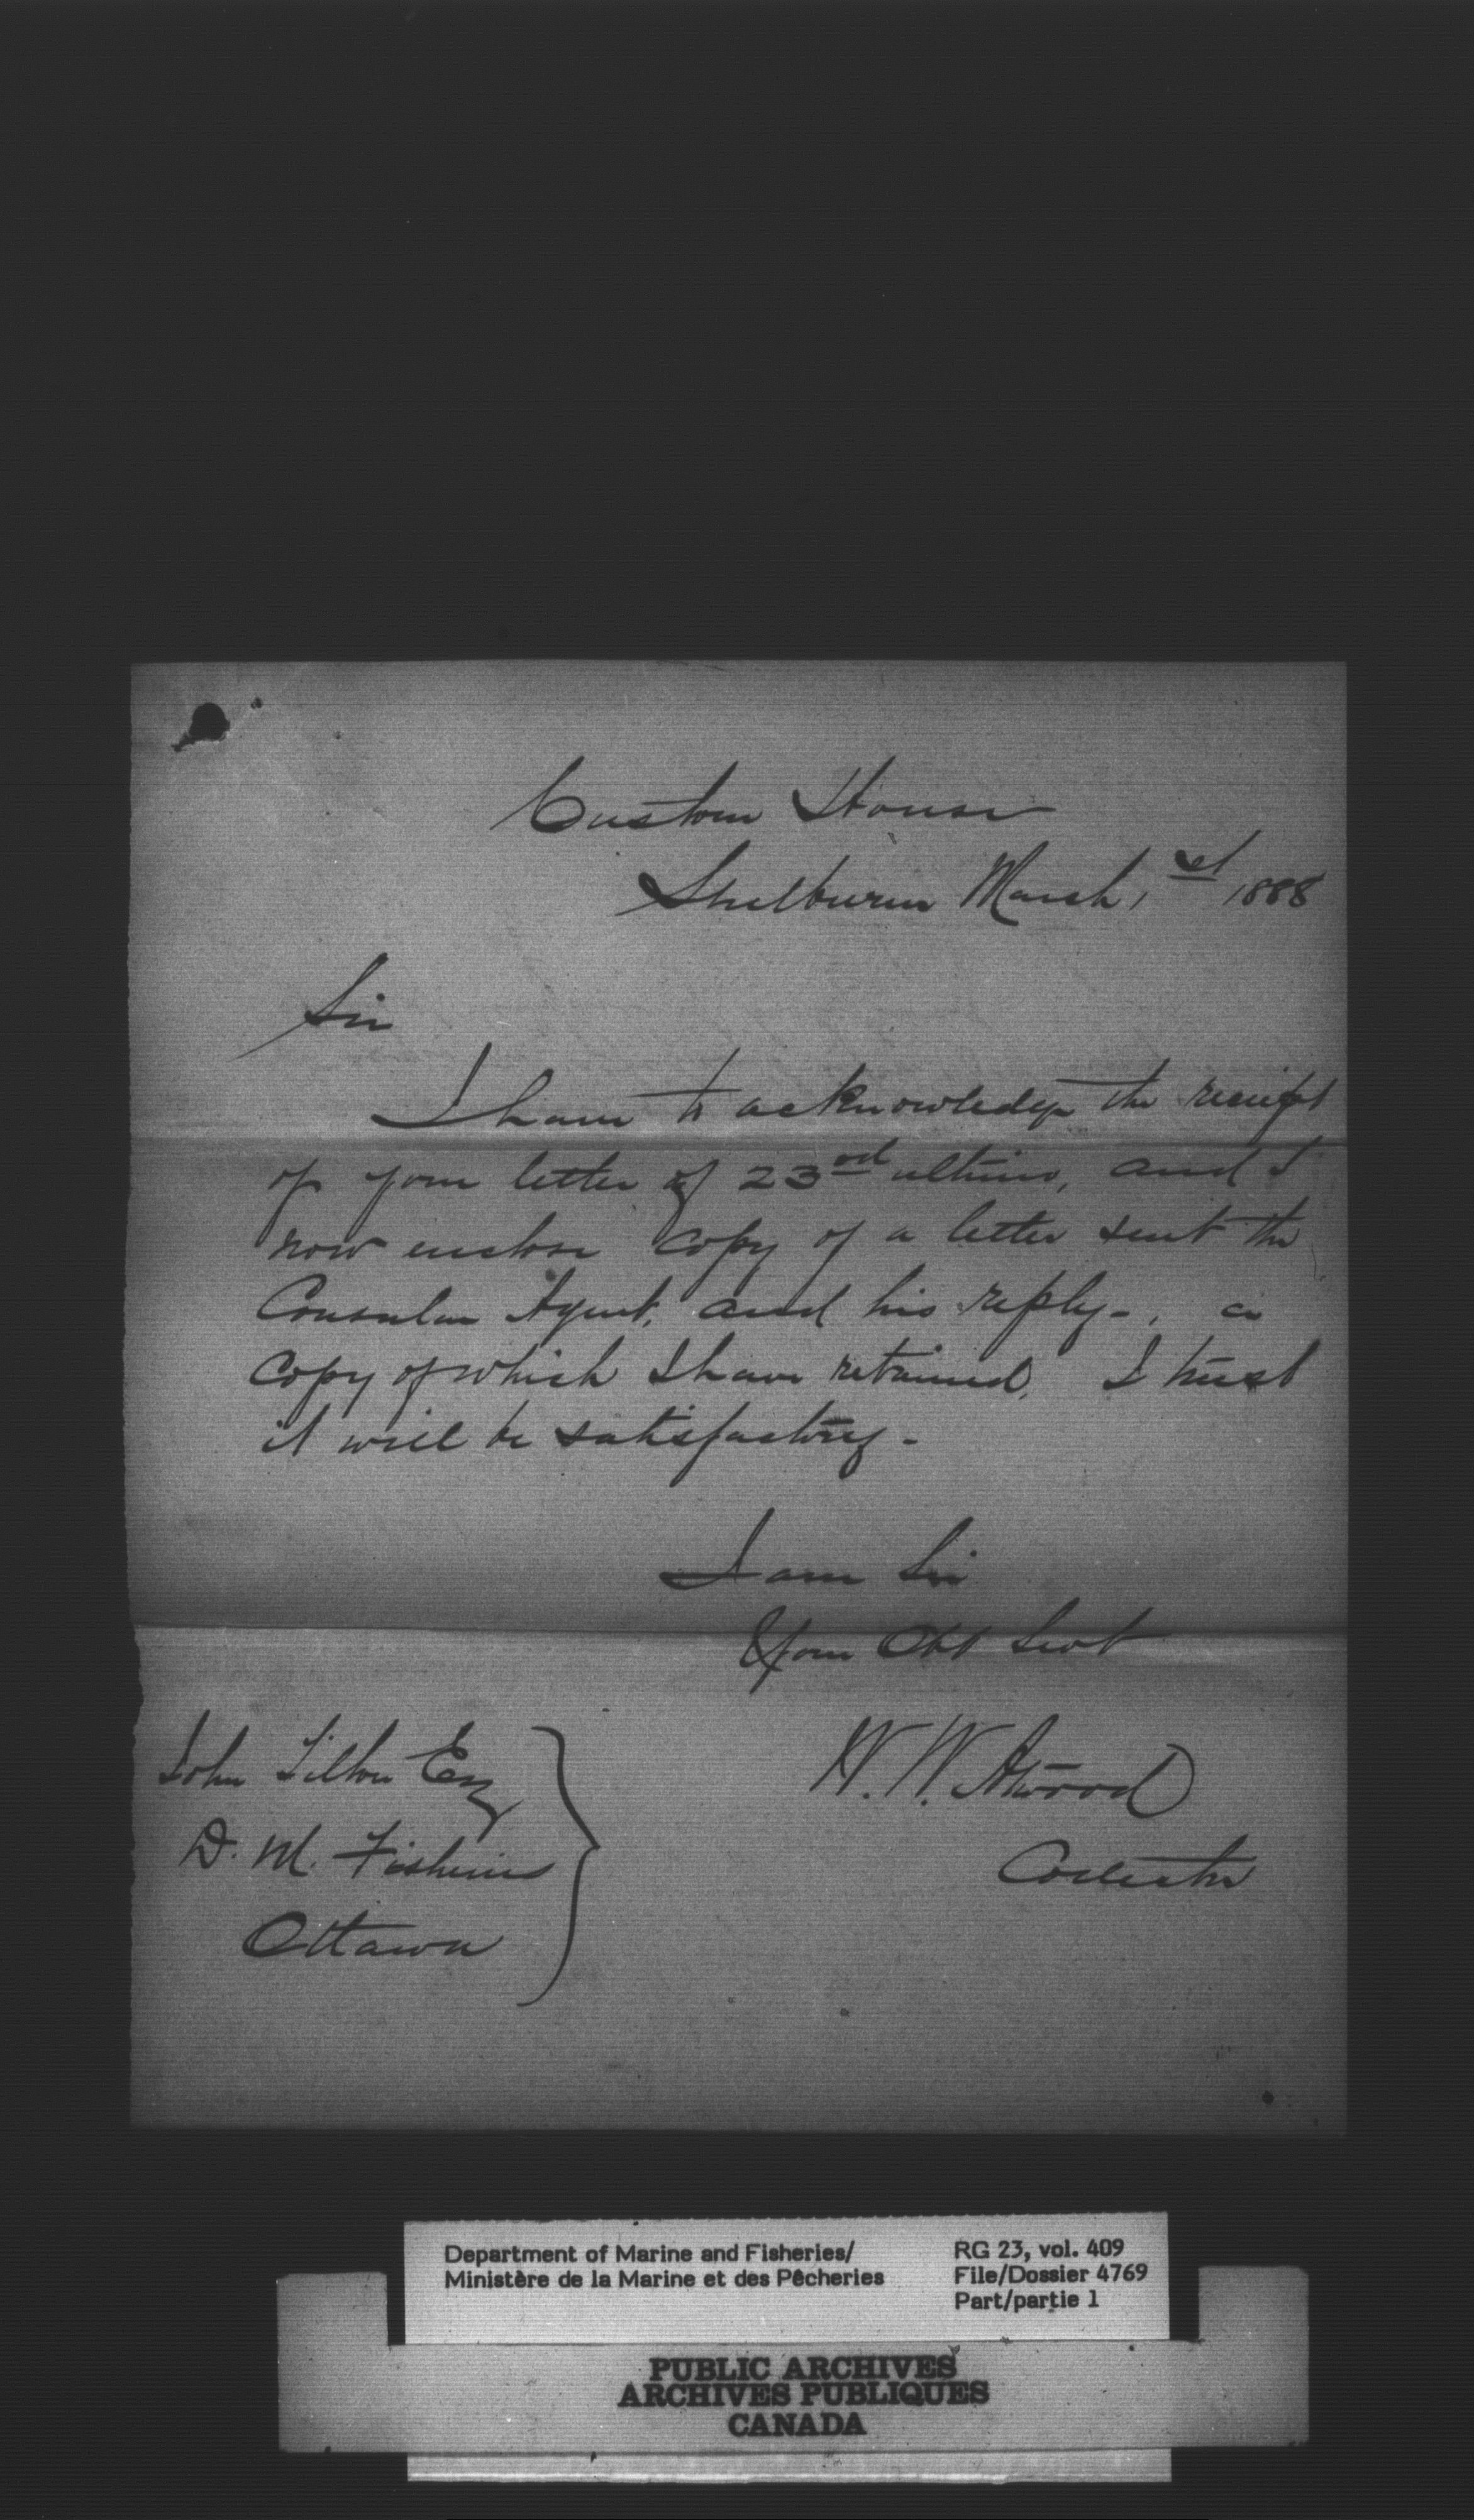 Custom House
Shelburne March 1st 1888
Sir
I have to acknowledge the receipt
of your letter of 23rd ultimo, and I
now enclose copy of a letter sent the
Consular Agent, and his reply -, a
copy of which I have retained, I trust
it will be satisfactory -
I am Sir
Your Obt Servt
W. W. Atwood
Collector
John Tilton Esq
D. M. Fisheries
Ottawa
Department of Marine and Fisheries/
Ministère de la Marine et des Pêcheries
RG 23, vol. 409
File/Dossier 4769
Part/partie 1
PUBLIC ARCHIVES
ARCHIVES PUBLIQUES
CANADA